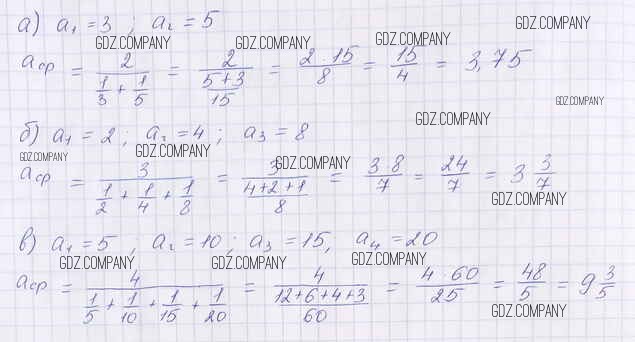 а) a₁ = 3 ; a₂ = 5
GDZ.COMPANY
GDZ.COMPANY GDZ.COMPANY GDZ.COMPANY
aср = 2/(1/3 + 1/5) = 2/((5+3)/15) = (2 · 15)/8 = 15/4 = 3,75
GDZ.COMPANY
GDZ.COMPANY
б) a₁ = 2 ; a₂ = 4 ; a₃ = 8
GDZ.COMPANY GDZ.COMPANY GDZ.COMPANY
aср = 3/(1/2 + 1/4 + 1/8) = 3/((4+2+1)/8) = (3 · 8)/7 = 24/7 = 3 3/7
GDZ.COMPANY
в) a₁ = 5 ; a₂ = 10 ; a₃ = 15, a₄ = 20
GDZ.COMPANY GDZ.COMPANY GDZ.COMPANY
aср = 4/(1/5 + 1/10 + 1/15 + 1/20) = 4/((12+6+4+3)/60) = (4 · 60)/25 = 48/5 = 9 3/5
GDZ.COMPANY